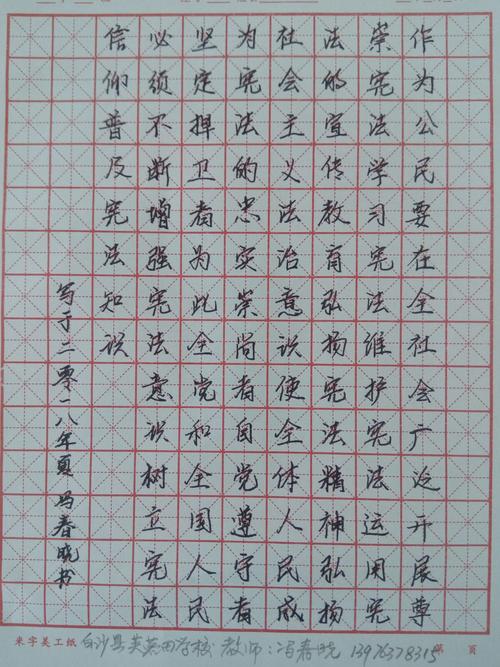 作为公民要在全社会广泛开展尊
崇宪法学习宪法维护宪法运用宪
法的宣传教育弘扬宪法精神弘扬
社会主义法治意识使全体人民成
为宪法的忠实崇尚者自觉遵守者
坚定捍卫者为此全党和全国人民
必须不断增强宪法意识树立宪法
信仰普及宪法知识
写于二零一八年夏 冯春晓书
米字美工纸 白沙县芙蓉田学校 教师:冯春晓 13976378315 第 页